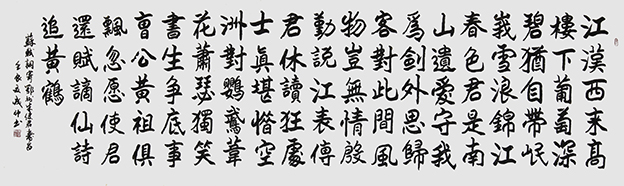 江漢西來高
樓下葡萄深
碧猶自帶岷
峩雪浪錦江
春色君是南
山遺愛守我
爲劍外思歸
客對此間風
物豈無情殷
勤説江表傳
君休讀狂處
士真堪惜空
洲對鸚鵡葦
花蕭瑟獨笑
書生爭底事
曹公黃祖俱
飄忽愿使君
還賦謫仙詩
追黃鶴
蘇軾詞寄鄂州朱使君壽昌
壬辰夏書